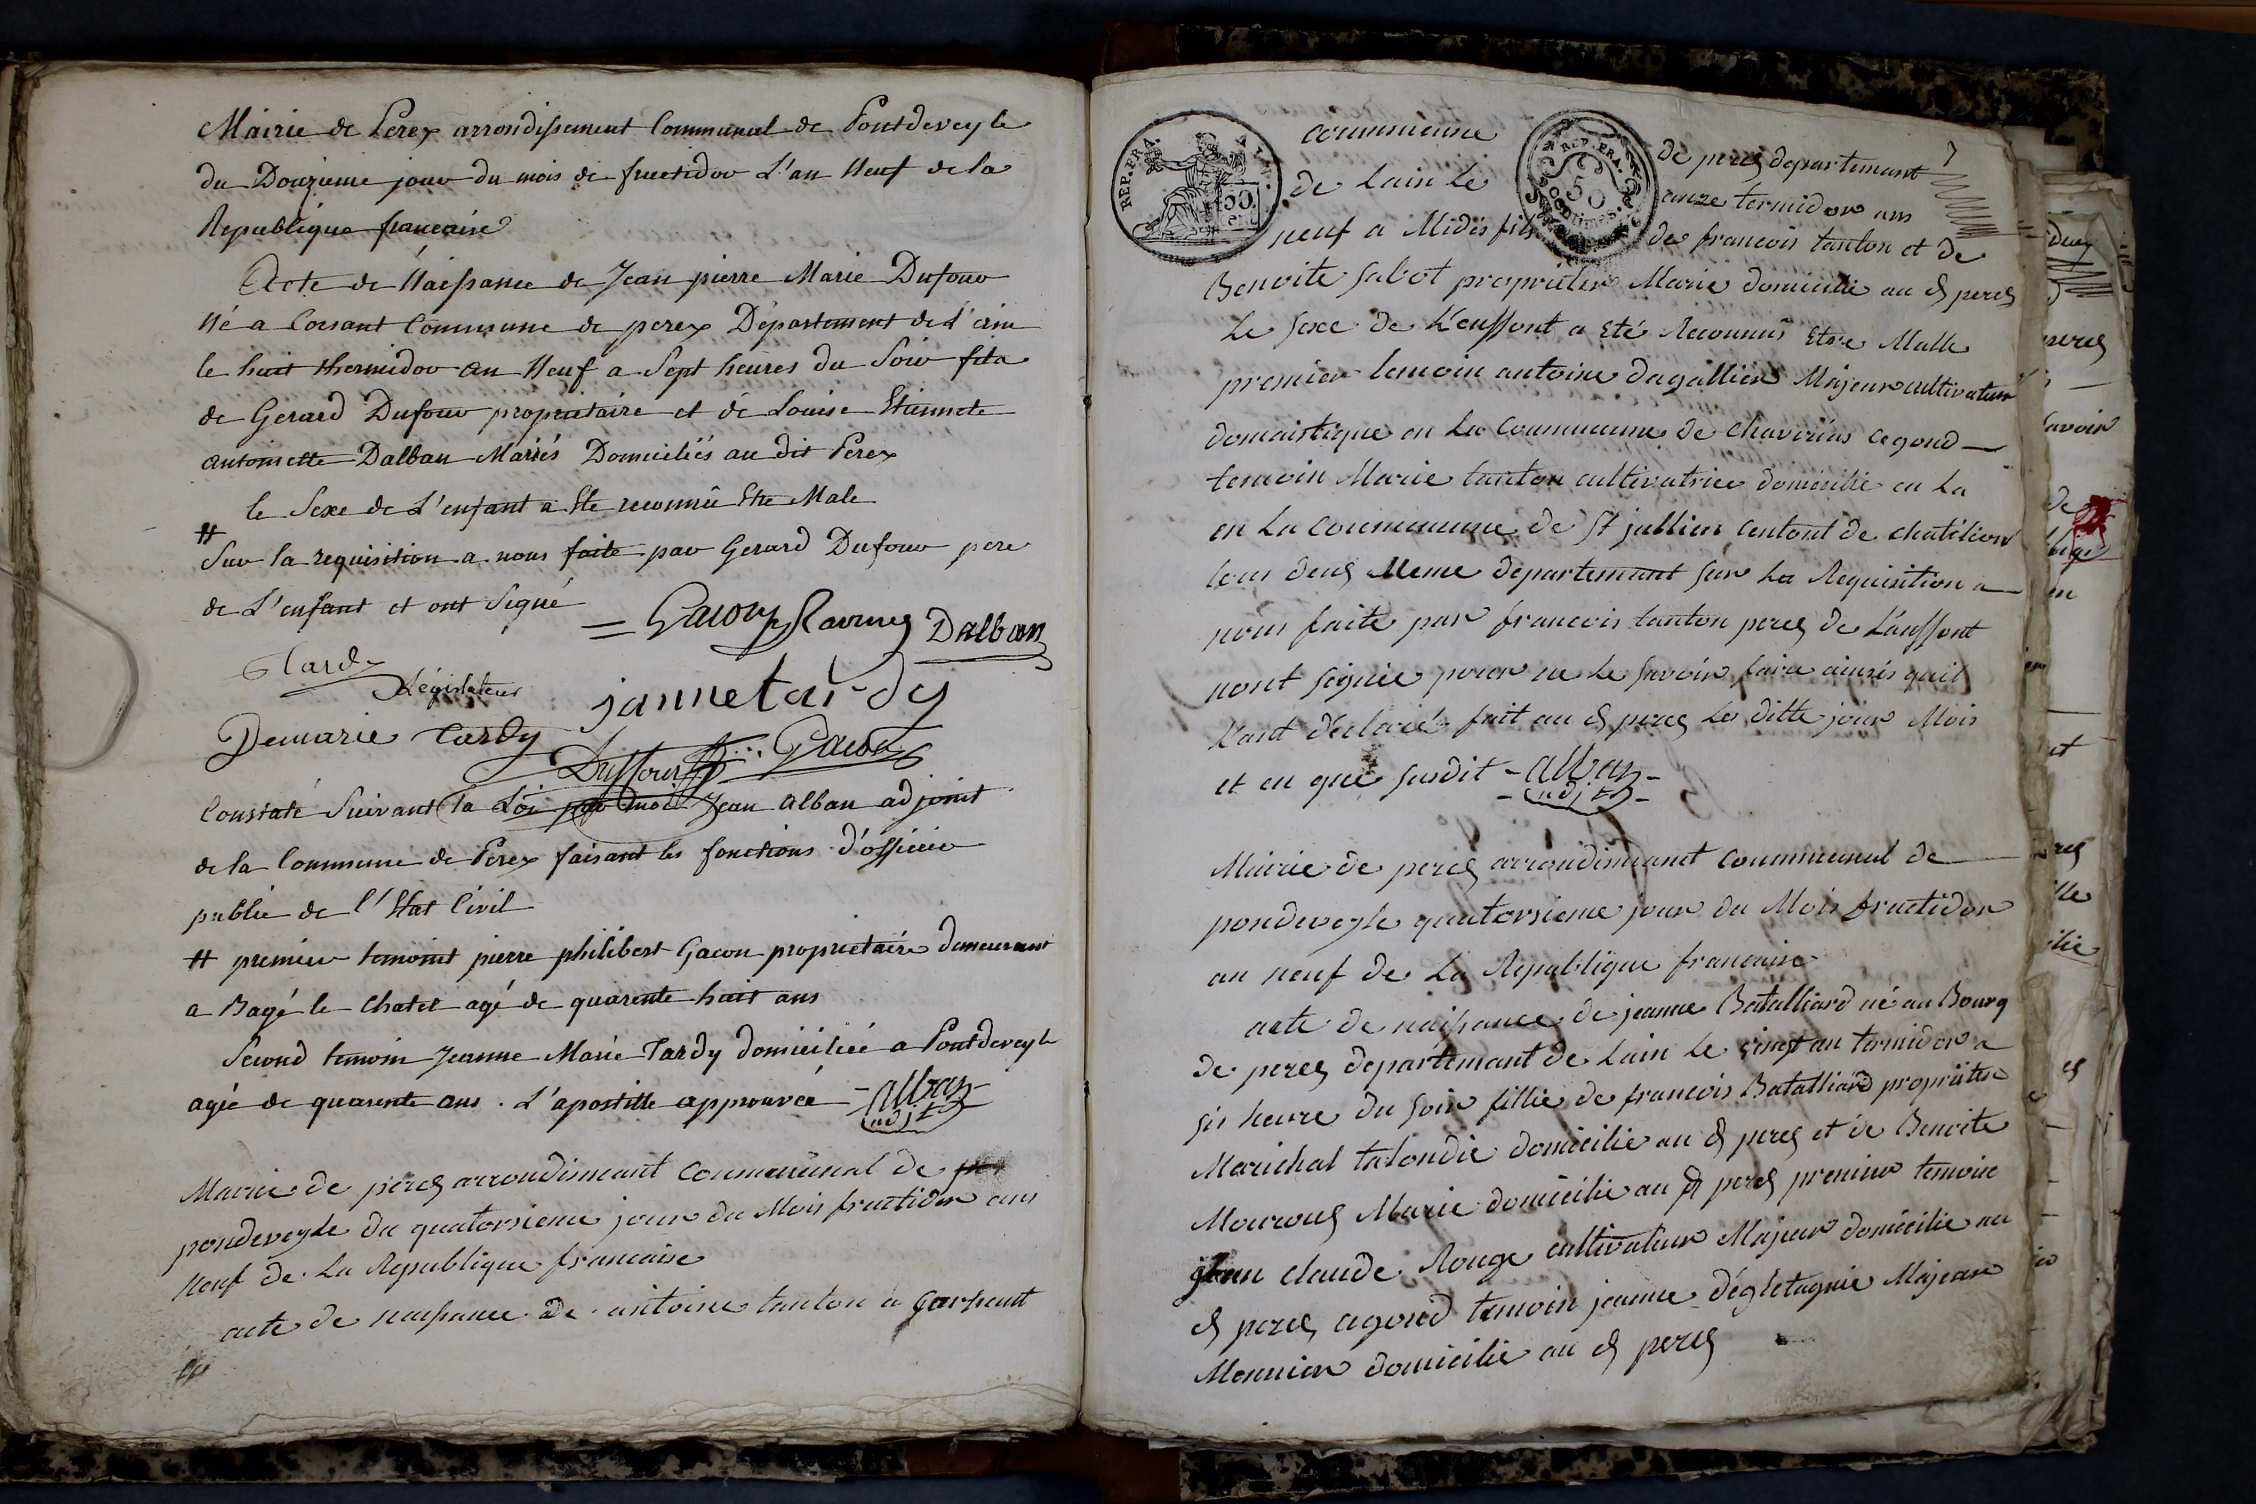 Mairie de Perex arrondissement Communal de Pontdeveyle
du Douzieme jour du mois de fructidor L'an Neuf de la
Republique francaise
Acte de Naissance de Jean pierre Marie Dufour
Né a Corsant Commune de perex Département de L'ain
le huit thermidor an Neuf a Sept heures du Soir fils
de Gerard Dufour proprietaire et de Louise Etiennete
antoinette Dalban Mariés Domiciliés au dit Perex
le Sexe de L'enfant a Ete reconnû Etre Male
#
Sur la requisition a nous faite par Gerard Dufour pere
de L'enfant et ont Signé
= Gacon Dalban
Tardy
Législateur
jannetardy
Demarie Tardy
Duffour Gacon
Constaté Suivant la Loi par moi Jean alban adjoint
de la Commune de Perex faisant les fonctions d'officier
public de l'Etat Civil
# premier temoint pierre philibert Gacon proprietaire demeurant
a Bagé le Chatel agé de quarente huit ans
Second temoin Jeanne Marie Tardy domiciliée a Pontdeveyle
agée de quarente ans. L'apostille approuvée - alban -
adjt
Mairie de perex arrondimant Coummunal de
pondeveyle du quatorsieme jour du Mois fructidor ans
Neuf de La Republique francaise
acte de naissance De antoine tanton a Corsent
7
coummunne de perex departemant
de Lain Le onze termidor ans
neuf a Midis fils de francois tanton et de
Benoite Sabot proprieter Marie domicilie au d perex
Le sexe de L'enffont a Eté Reconnus Etre Malle
premier temoin antoine dagallier Majeur cultivateur
domaistique en La Coummunne de Chaveirias cegond
temoin Marie tanton cultivatrice domicilie en La
en La Coummunne de St jullien Centont de chatilion
tous deux Meme departemant sur La Requisition a
nous faite par francois tanton perex de L'anffont
nont signie pour ne Le savoir faire ainsis quil
L'ont déclaré fait au d perex Les ditte jour Mois
et en que susdit - alban -
- adjt -
Mairie de perex arrondimant Coummunal de
pondeveyle quatorsieme jour du Mois fructidor
an neuf de La Republique francaise
acte de naissance de jeanne Batalliard né au Bourg
de perex departemant de Lain Le vingt an termidor a
sis heure du soir fillie de francois Batalliard proprietere
Marichal talondie domicilie au d perex et de Benoite
Mouroux Marie domicilie au d perex premier temoin
jean claude Rouge cultivateur Majeur domicilie au
d perex cegond temoin jeanne Majeare
Meunier domicilie au d perex